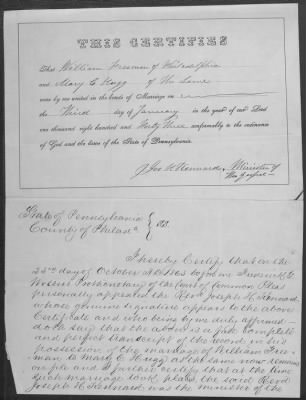 THIS CERTIFIES
That William Freeman of Philadelphia
and Mary C Hugg of the Same
were by me united in the bonds of Marriage on
the Third day of January in the year of our Lord
one thousand eight hundred and Forty Three conformably to the ordinance
of God and the laws of the State of Pennsylvania.
Jos H Kennard, Minister of
the Gospel
State of Pennsylvania
County of Philada } SS.
I hereby Certify that on the
22nd day of October AD 1863 before me Frederick G
Prothonotary of the Court of Common Pleas
personally appeared the Revd Joseph H Kennard,
whose genuine signature appears to the above
Certificate and who being by me duly affirmed
doth said that the above is a just complete
and perfect transcript of the record in his
possession of the marriage of William Free-
man to Mary C Hugg at the same now remains
on file and I further certify that at the time
such marriage took place the said Revd
Joseph H Kennard was the minister of the